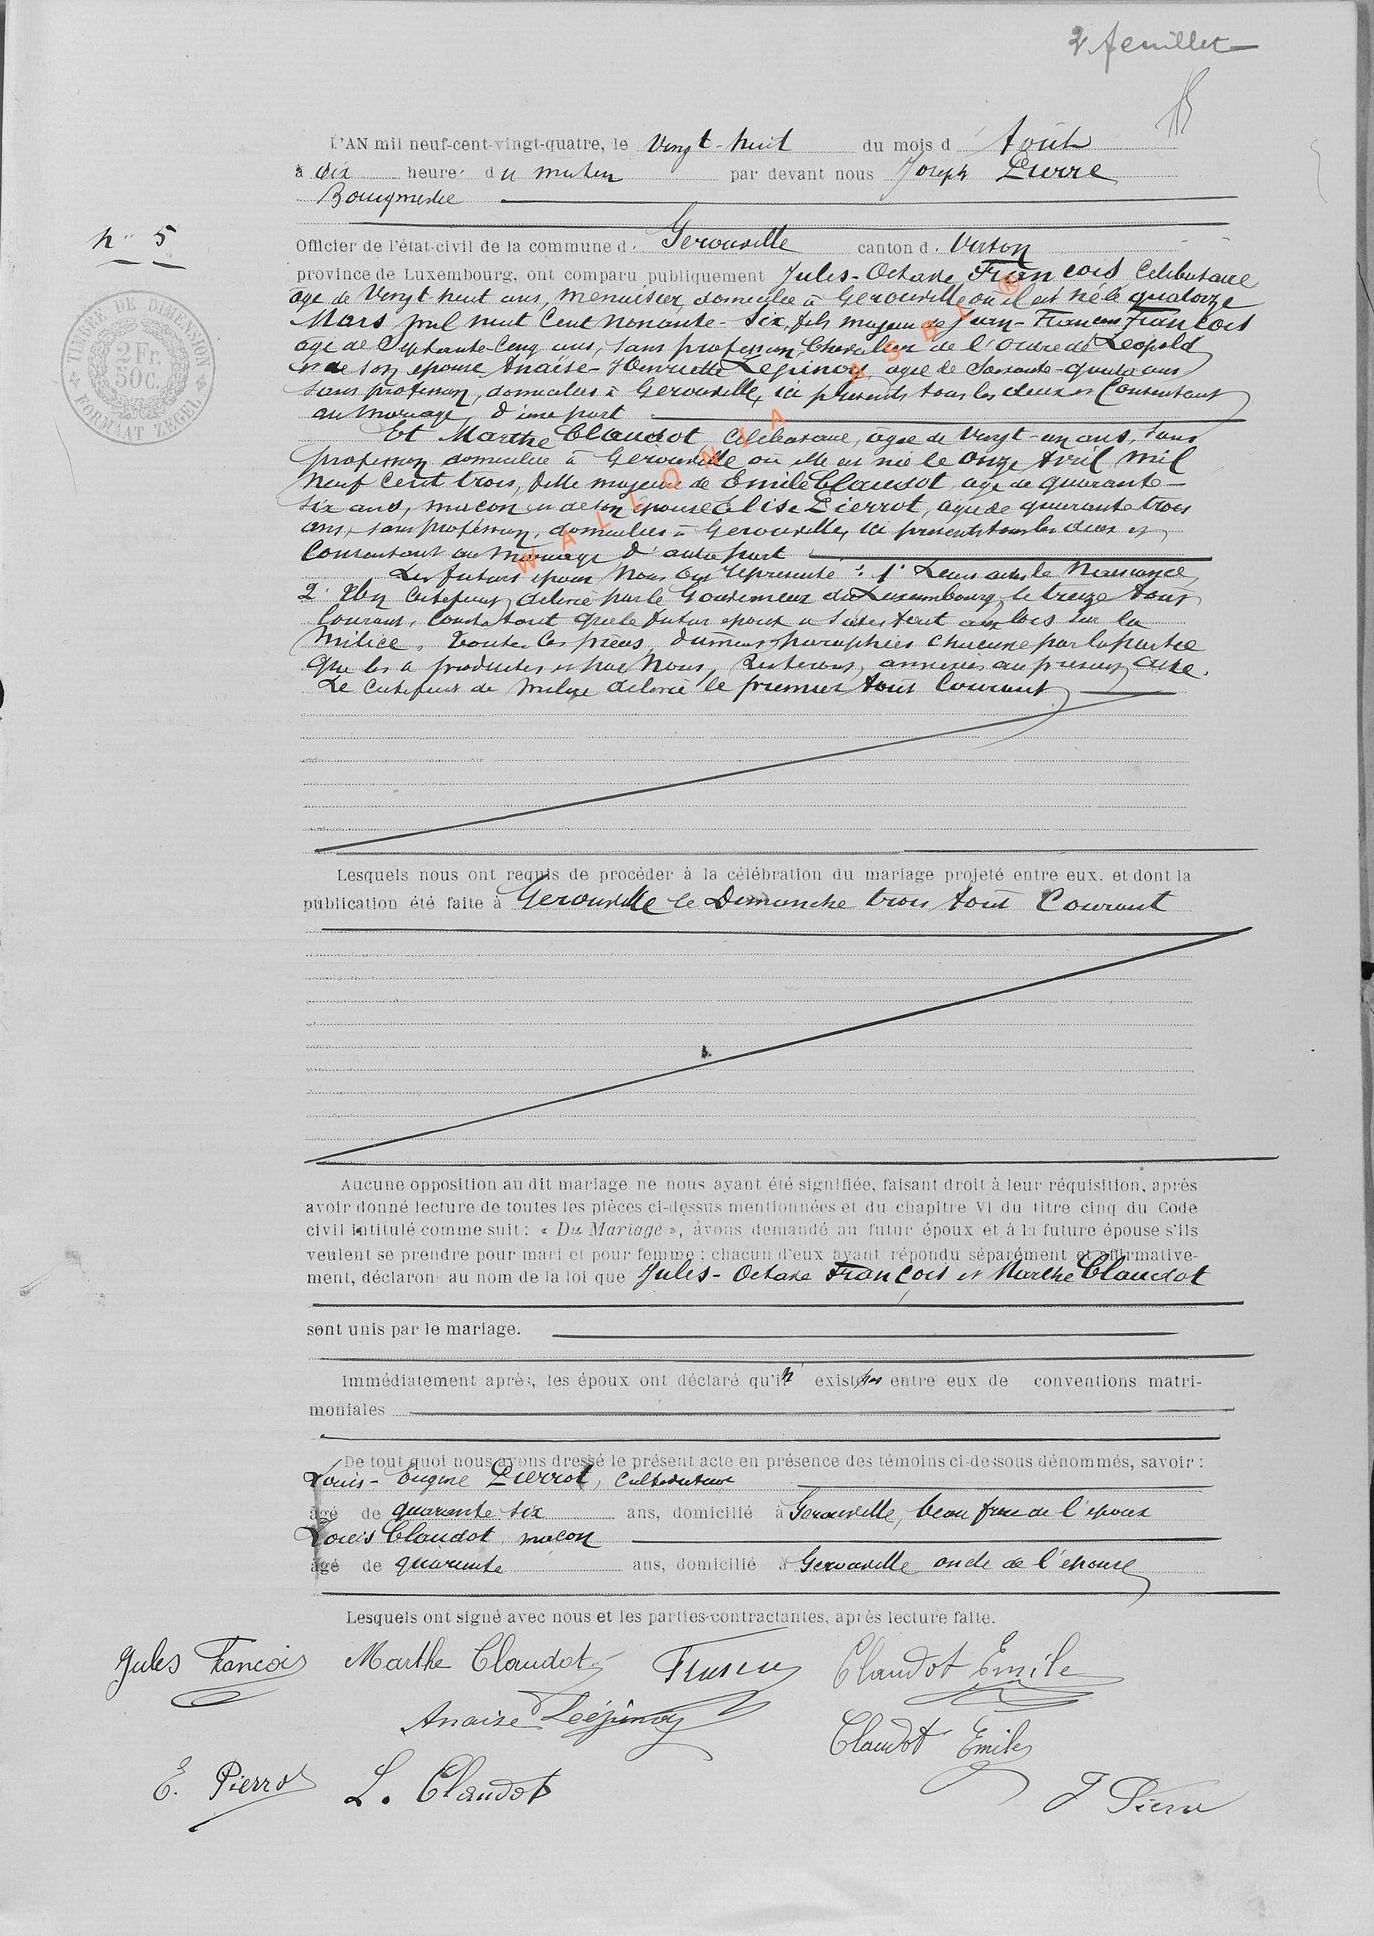 2 feuillet
L'AN mil neuf-cent-vingt-quatre, le Vingt-huit du mois d Août
à dix heure du matin par devant nous Joseph Pierre
Bourgmestre
n° 5
Officier de l'état-civil de la commune d. Gerouville canton d. Virton
province de Luxembourg, ont comparu publiquement Jules-Octave François Célibataire
âgé de Vingt huit ans, menuisier domicilié à Gerouville où il est né le quatorze
Mars mil huit Cent nonante-Six, fils majeur de Jean-François François
âgé de Septante Cinq ans, sans profession, Chevalier de l'Ordre de Léopold
et de son épouse Anaïse-Henriette Lepinoy, agée de Soixante-quatre ans
sans profession, domiciliés à Gerouville, ici présents tous les deux et Consentant
au mariage, d'une part
Et Marthe Claudot Célibataire, âgée de Vingt-un ans, sans
profession domiciliée à Gerouville où elle est née le Onze Avril Mil
Neuf Cent trois, fille majeure de Emile Claudot, age de quarante-
six ans, maçon et de son épouse Elise Pierrot, agée de quarante trois
ans, sans profession, domiciliés à Gerouville, ici présents tous les deux et
Consentant au mariage d'autre part
Les futurs époux Nous ont représenté : 1° Leurs actes de Naissance,
2° Un Certificat délivré par le Gouverneur du Luxembourg, le treize Août
Courant, Constatant que le futur époux a satisfait aux lois sur la
Milice. Toutes les pièces, dûment paraphées chacune par la partie
que les a produites et par Nous, Resteront annexées au présent acte.
Le Certificat de Milice délivré le premier Août Courant
TIMBRE DE DIMENSION
2 Fr.
50 c.
FORMAAT ZEGEL
WALLONIA ASBL ®
Lesquels nous ont requis de procéder à la célébration du mariage projeté entre eux. et dont la
publication été faite à Gerouville le Dimanche trois Août Courant
Aucune opposition au dit mariage ne nous ayant été signifiée, faisant droit à leur réquisition, après
avoir donné lecture de toutes les pièces ci-dessus mentionnées et du chapitre VI du titre cinq du Code
civil intitulé comme suit : « Du Mariage », avons demandé au futur époux et à la future épouse s'ils
veulent se prendre pour mari et pour femme ; chacun d'eux ayant répondu séparément et affirmative-
ment, déclaron au nom de la loi que Jules-Octave François et Marthe Claudot
sont unis par le mariage.
Immédiatement après, les époux ont déclaré qu'il n' existe pas entre eux de conventions matri-
moniales
De tout quoi nous avons dressé le présent acte en présence des témoins ci-dessous dénommés, savoir :
Louis-Eugène Pierrot, Cultivateur
âgé de quarante six ans, domicilié à Gerouville, beau frère de l'époux
Louis Claudot maçon
âgé de quarante ans, domicilié à Gerouville oncle de l'épouse
Lesquels ont signé avec nous et les parties-contractantes, après lecture faite.
Jules François Marthe Claudot Claudot Emile
Anaise Lépinoy
Claudot Emile
E. Pierrot L. Claudot
J Pierre